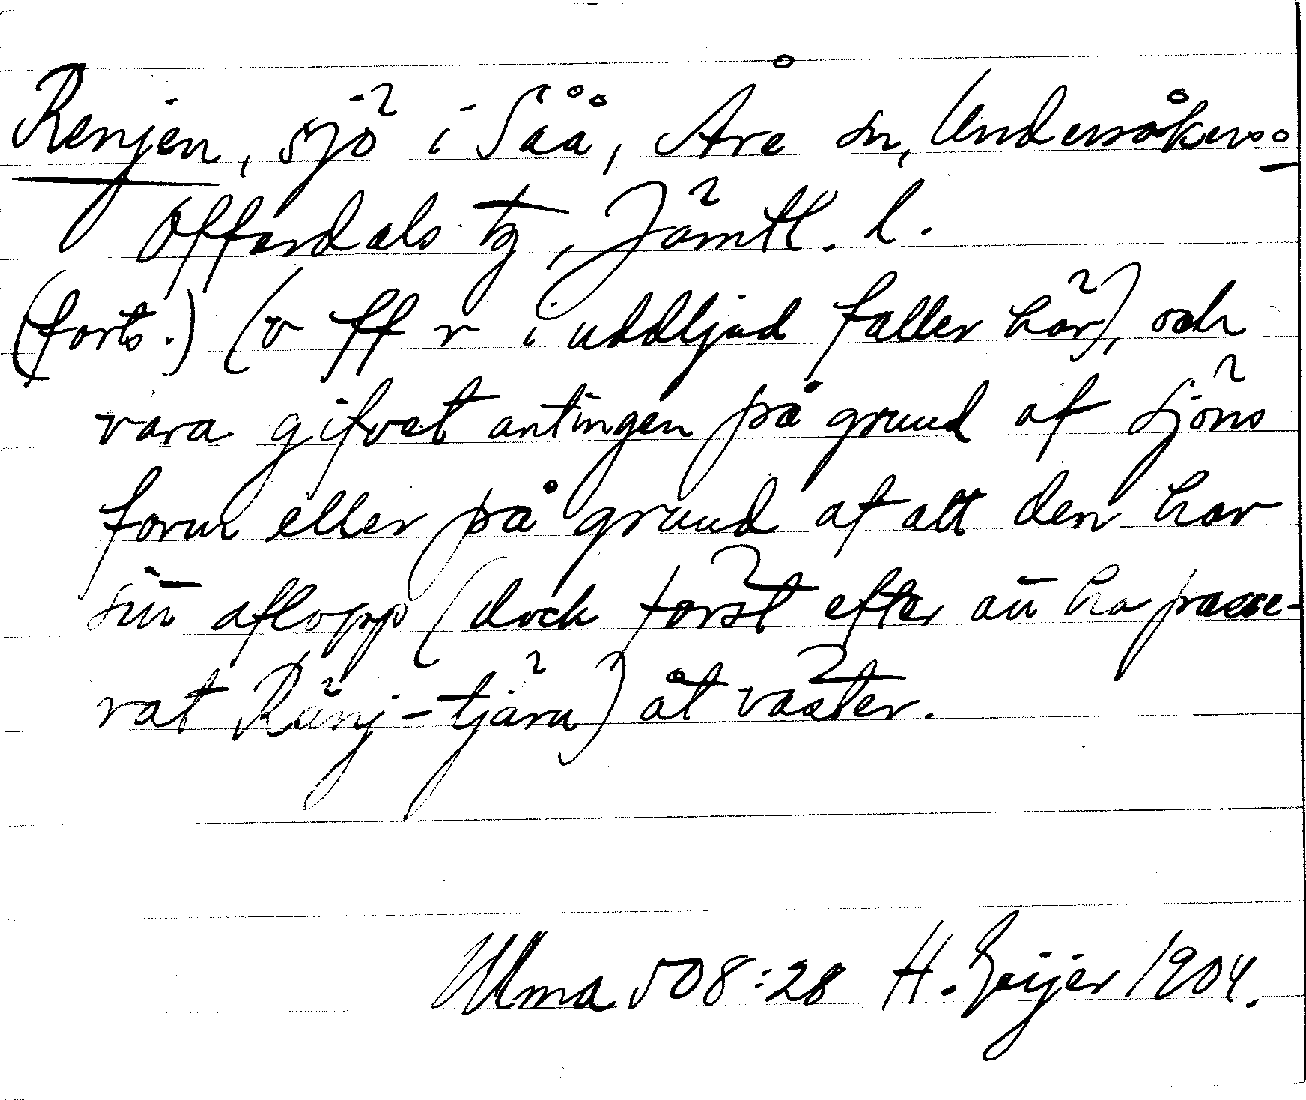 Renjen, sjö i Såå, Åre sn, Undersåkers o
Offerdals tg, Jämtl. l.
(forts.) (v ff r i uddljud faller här), och
vara gifvet antingen på grund af sjöns
form eller på grund af att den har
sitt aflopp (dock först efter att ha passe-
rat Ränj-tjärn) åt väster.
Ulma 508:28 H. Geijer 1904.